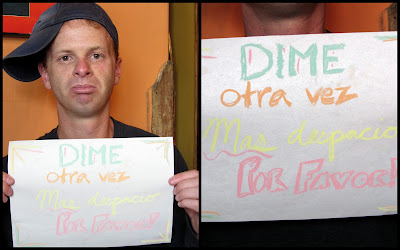 DIME
otra vez
Mas despacio
POR FAVOR!
DIME
otra vez
Mas despacio
POR FAVOR!